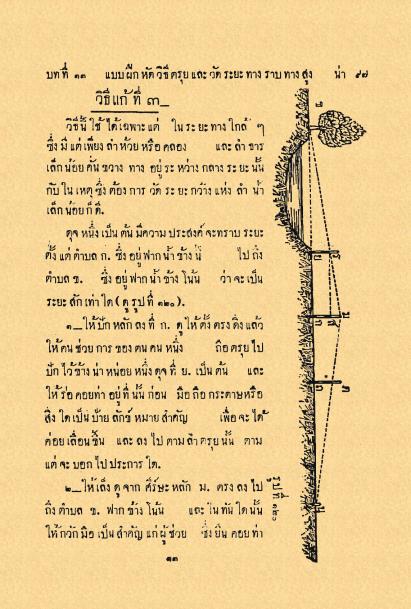 บทที่ ๑๓ แบบฝึกหัดวิธีตรุยและวัดระยะทางราบทางสูง น่า ๙๗
วิธีแก้ที่ ๓_
วิธีนี้ใช้ได้เฉพาะแต่ ในระยะทางใกล้ ๆ
ซึ่งมีแต่เพียงลำห้วยหรือคลอง และลำธาร
เล็กน้อยคั่นขวางทางอยู่ระหว่างกลางระยะนั้น
กับในเหตุซึ่งต้องการวัดระยะกว้างแห่งลำน้ำ
เล็กน้อยก็ดี.
ดุจหนึ่งเป็นต้นมีความประสงค์จะทราบระยะ
ตั้งแต่ตำบล ก. ซึ่งอยู่ฟากน้ำข้างนี้ ไปถึง
ตำบล ข. ซึ่งอยู่ฟากน้ำข้างโน้น ว่าจะเป็น
ระยะสักเท่าใด (ดูรูปที่ ๑๒๐).
๑_ให้ปักหลักลงที่ ก. ดูให้ตั้งตรงดิ่งแล้ว
ให้คนช่วยการของตนคนหนึ่ง ถือตรุยไป
ปักไว้ข้างน่าหน่อยหนึ่งดุจที่ ย. เป็นต้น และ
ให้รอคอยท่าอยู่ที่นั้นก่อน มือถือกระดาษหรือ
สิ่งใดเป็นป้ายลักษ์หมายสำคัญ เพื่อจะได้
ค่อยเลื่อนขึ้น และลงไปตามลำตรุยนั้น ตาม
แต่จะบอกไปประการใด.
๒_ให้เล็งดูจากศีร์ษะหลัก ม. ตรงลงไป
ถึงตำบล ข. ฟากข้างโน้น และในทันใดนั้น
ให้กวักมือเป็นสำคัญแก่ผู้ช่วย ซึ่งยืนคอยท่า
รูปที่ ๑๒๐
๑๓